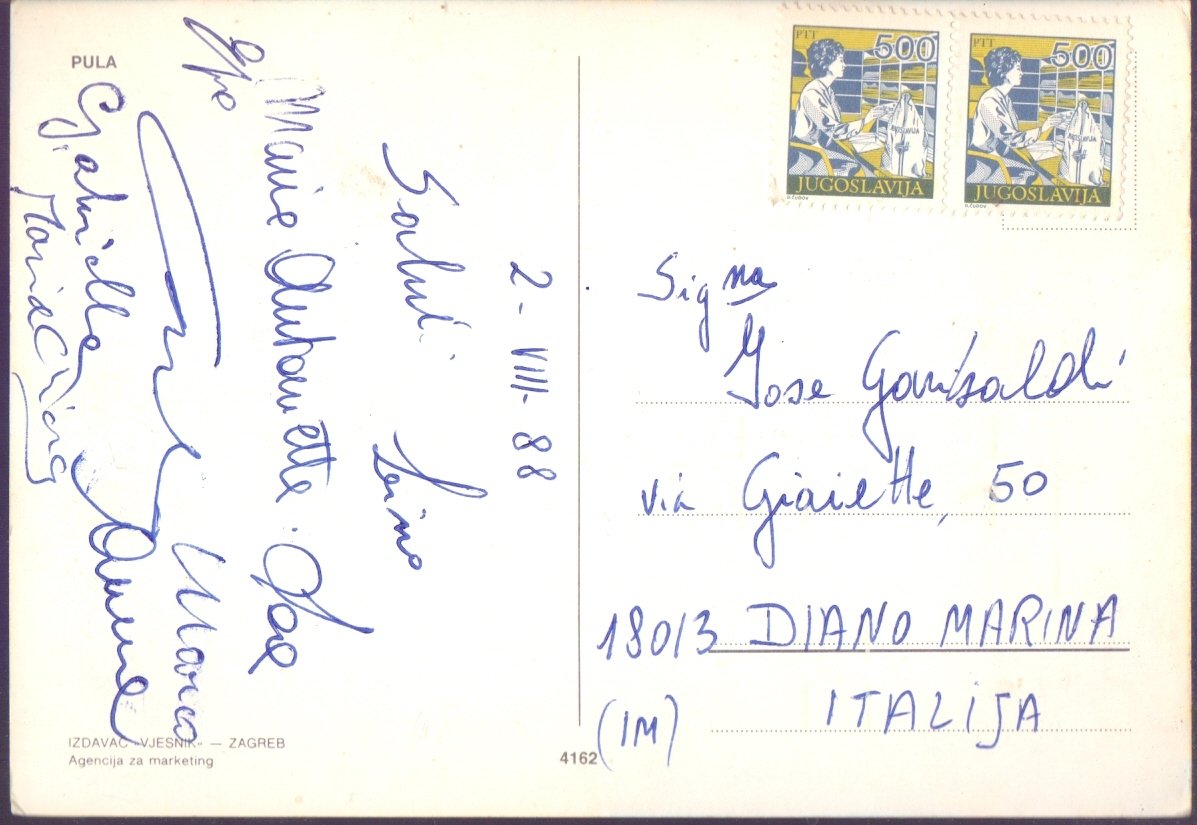 PULA
2-VIII-88
Saluti
Marie Antoinette
Marco
Gabriella
PTT 500
JUGOSLAVIJA
PTT 500
JUGOSLAVIJA
Sig na
Jose Garibaldi
via Giaiette, 50
18013 DIANO MARINA
(IM) ITALIJA
IZDAVAČ «VJESNIK» — ZAGREB
Agencija za marketing
4162